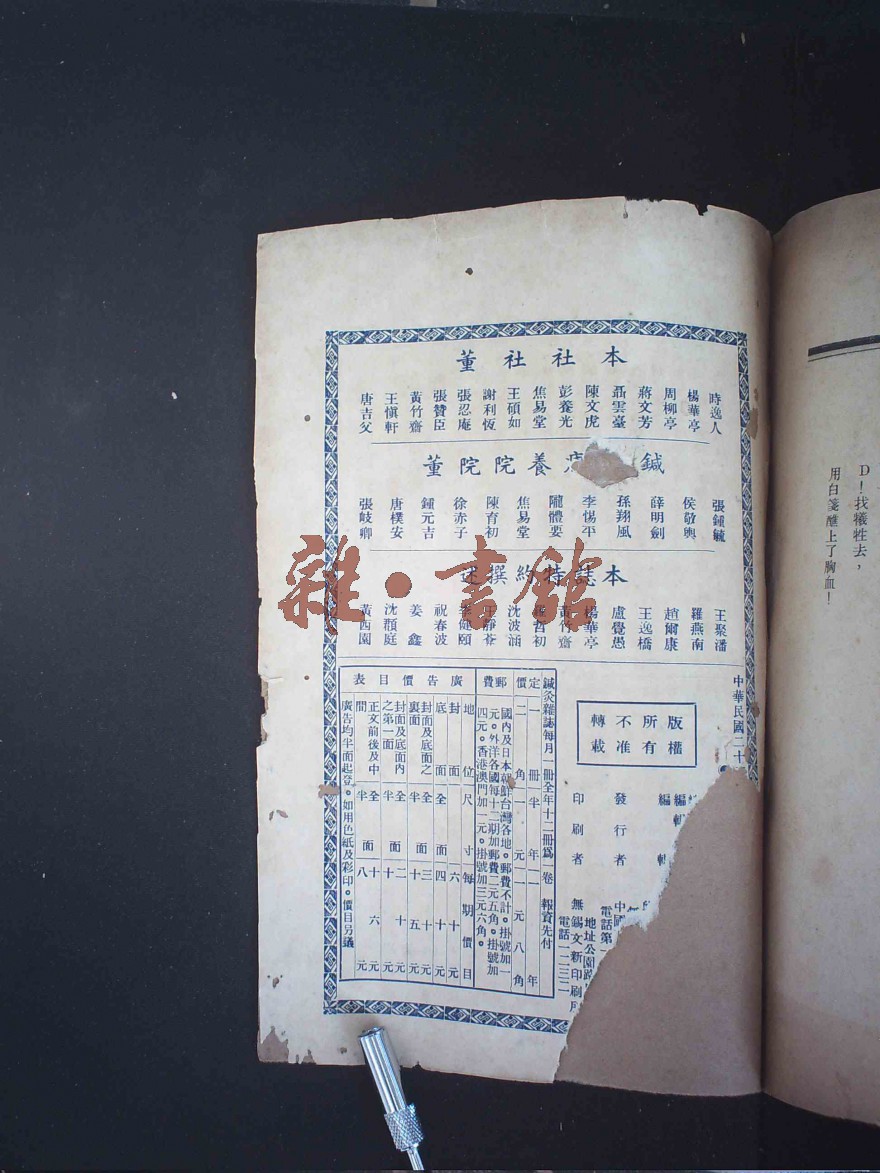 D！找犧牲去，
用白箋醮上了胸血！
本社社董
時逸人
楊華亭
周柳亭
蔣文芳
聶雲臺
陳文虎
彭養光
焦易堂
王碩如
謝利恆
張忍庵
張贊臣
黃竹齋
王愼軒
唐吉父
鍼 養院院董
張鍾毓
侯敬輿
薛明劍
孫翔風
李惕平
隴體要
焦易堂
陳育初
徐赤子
鍾元吉
唐樸安
張岐卿
本誌特約撰述
王聚潘
羅燕南
趙爾康
王逸橋
盧覺愚
楊華亭
黃竹齋
哲初
沈波涵
靜菴
李健頤
祝春波
姜鑫
沈顯庭
黃西園
中華民國二十
版權所有
不准轉載
編輯
編輯
發行者 中國
印刷者 無錫文新印刷所
電話第
地址公園路
電話一二三二
鍼灸雜誌每月一冊全年十二冊爲一卷 報資先付
定價
一冊 二角
半年 一元一角
一年 二元八角
郵費
國內及日本朝鮮台灣各地。郵費不計。掛號加一
元。外洋各國每十二期加郵費二元五角。掛號加
四元。香港澳門加一元。掛號加三元六角。
廣告價目表
地位 尺寸 每期價目
封面 六十元
底面 全面 四十元
封面及底面之裏面 全面 三十元
半面 十五元
封面及底面內之第一面 全面 二十元
半面 十元
正文前後及中間 全面 十六元
半面 八元
廣告均半面起登。如用色紙及彩印。價目另議
雜·書館